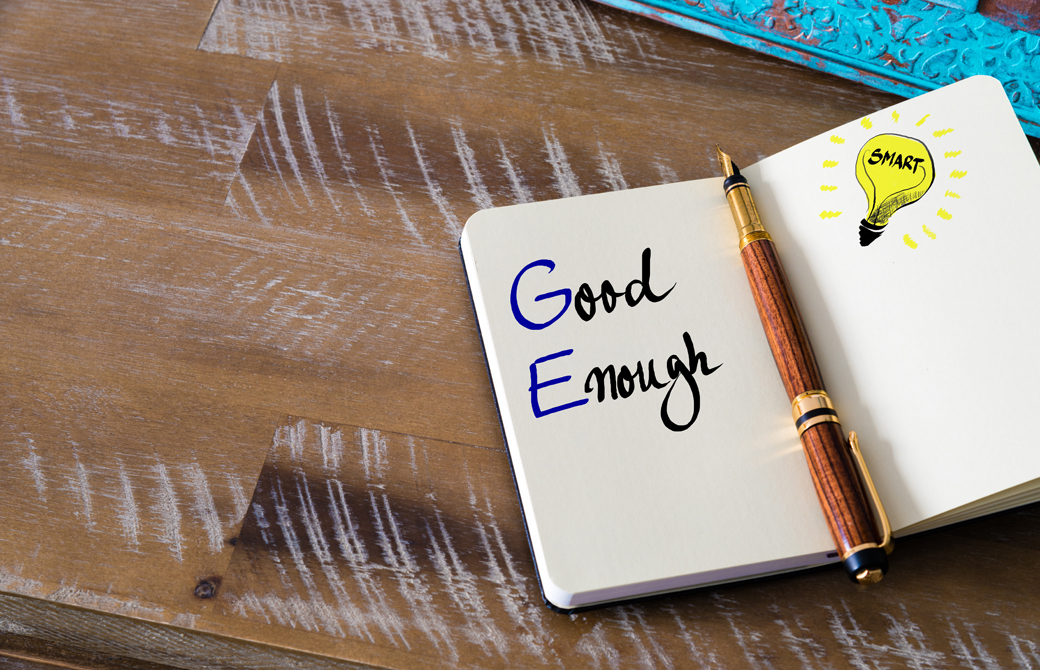 Good
Enough
SMART